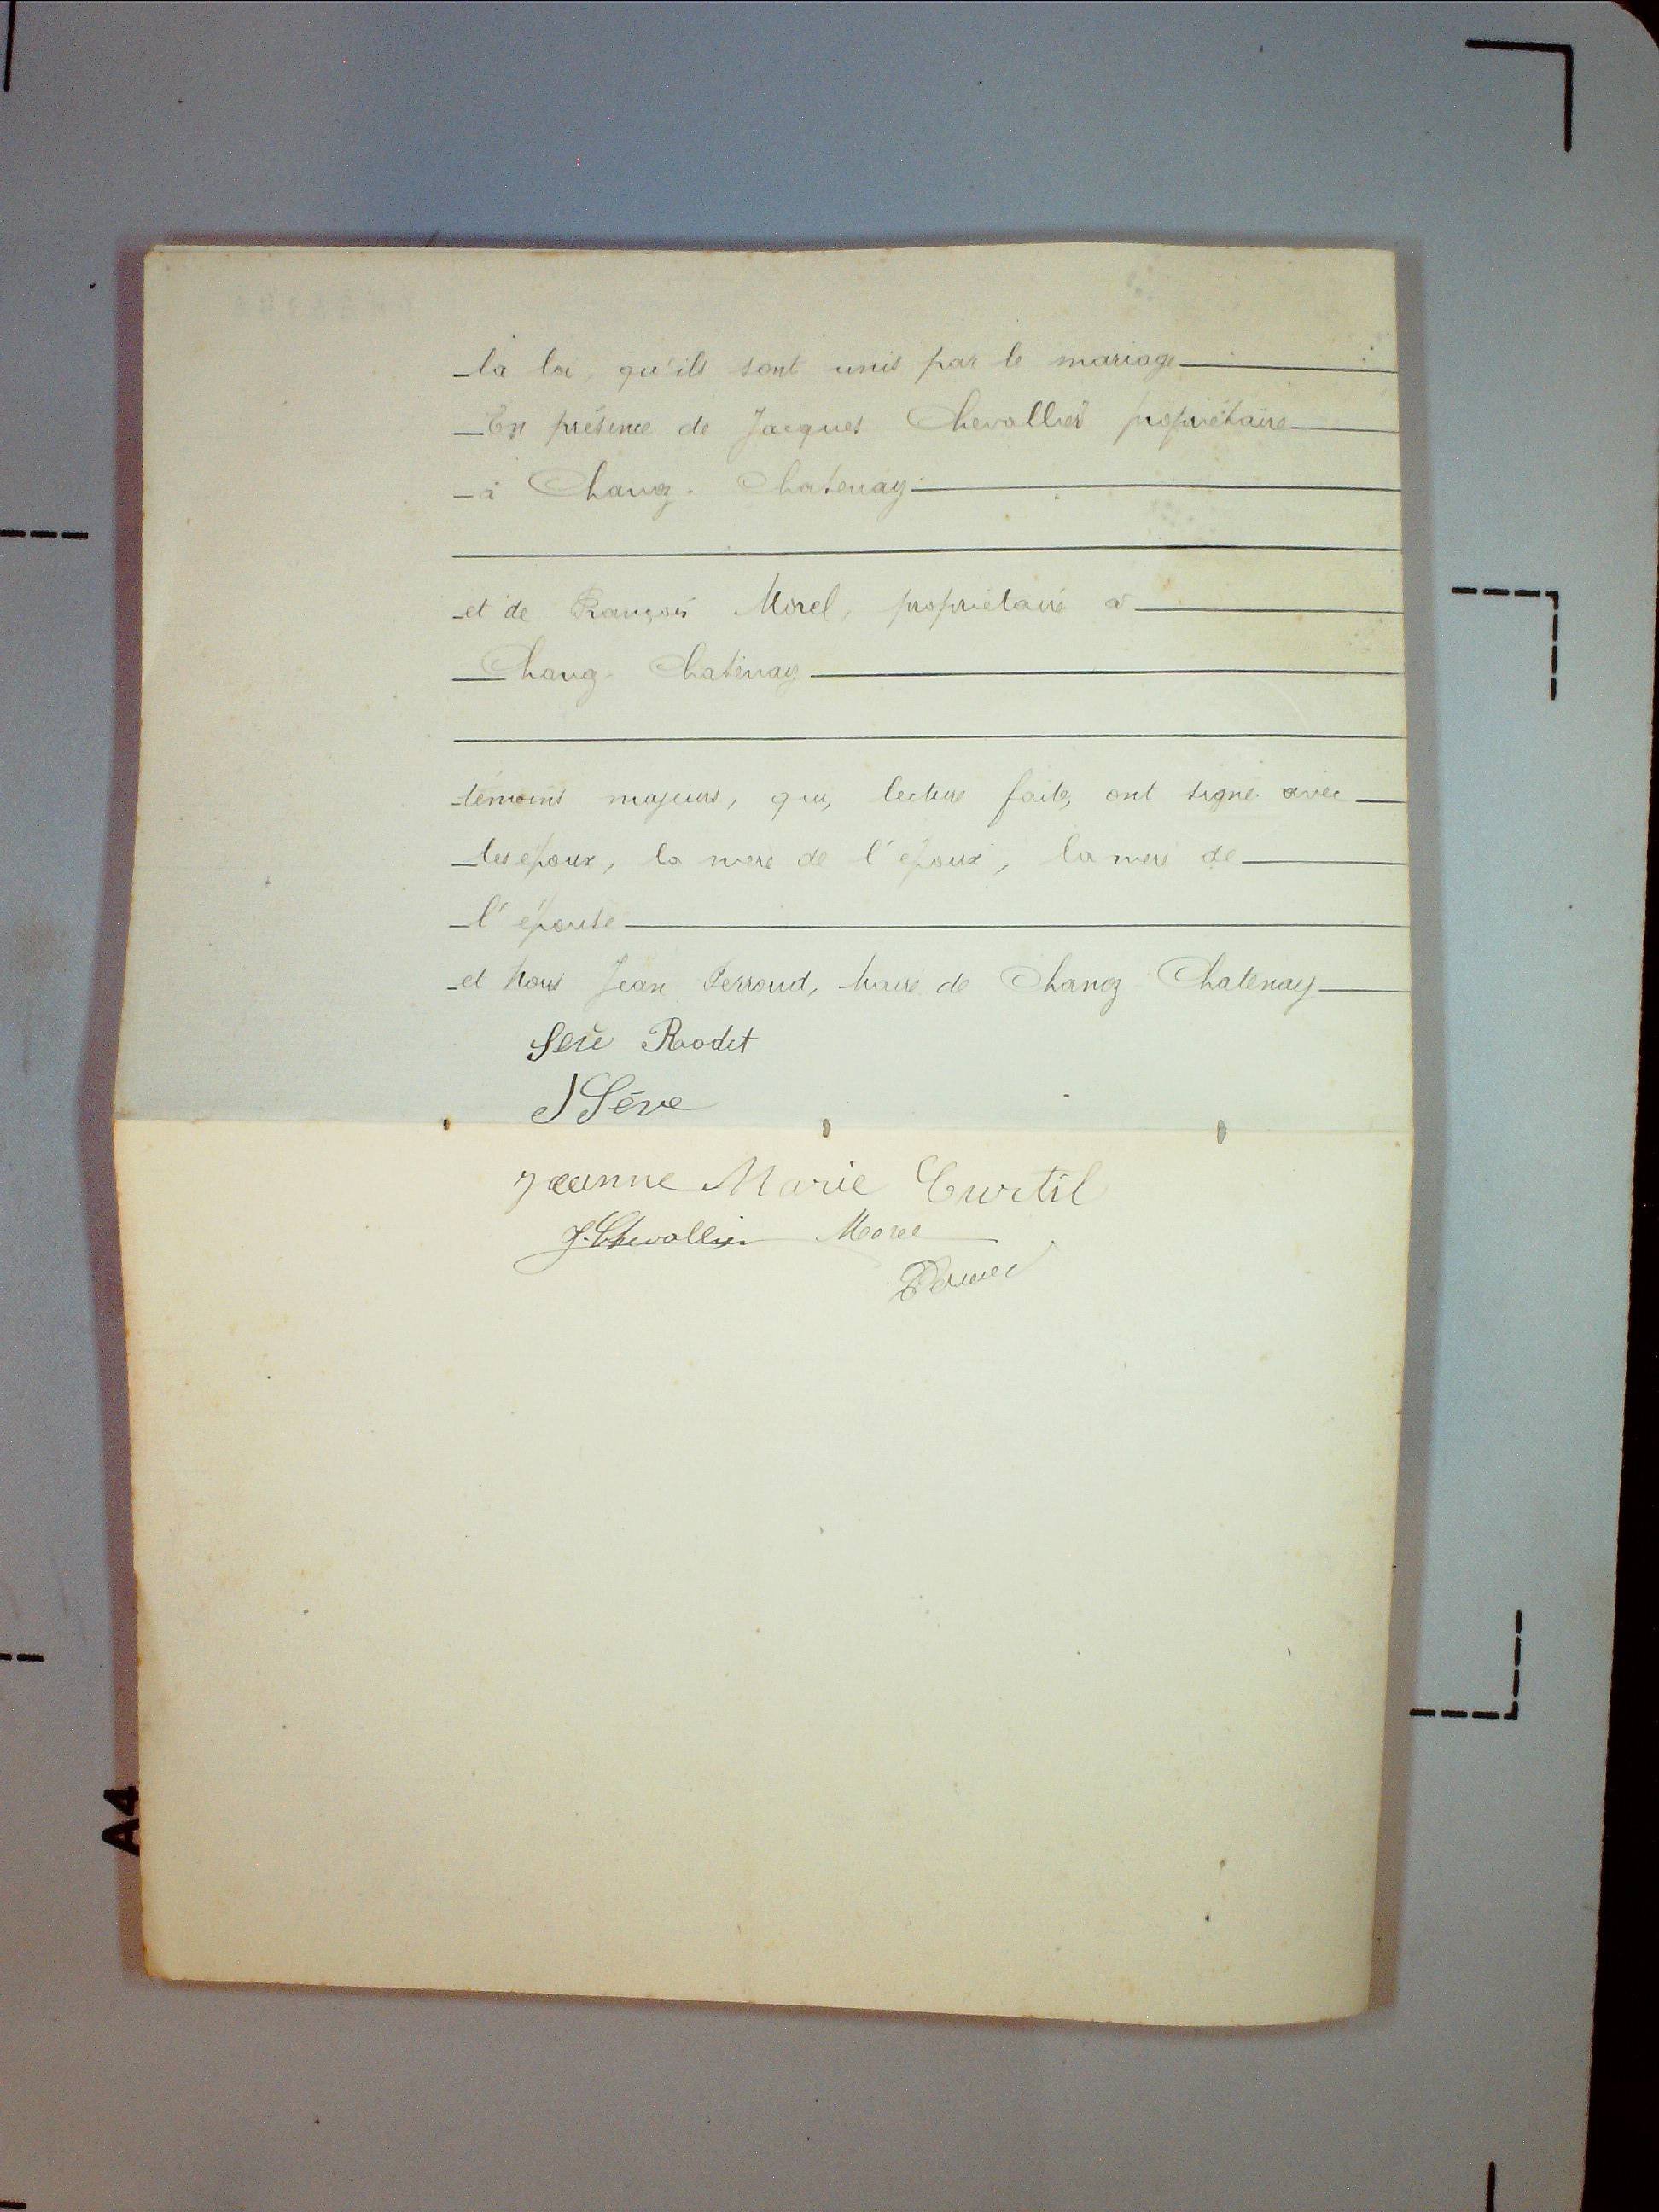 la loi, qu'ils sont unis par le mariage
En présence de Jacques Chevallier propriétaire
à Chang. Chatenay
et de François Morel, propriétaire à
Chang. Chatenay
témoins majeurs, qui, lecture faite, ont signé avec
les époux, la mère de l'époux, la mère de
l'épouse
et Nous Jean Perroud, Maire de Chang Chatenay
Seve Rodet
J Sève
Jeanne Marie Curtil
J. Chevallier Morel
A4